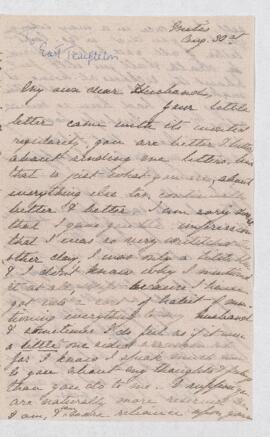 Aug. 30th
East Templeton
My own dear Husband,
Your little
letter came with its wonted
regularity, you are better & better
about sending me letters, and
that is just what you are, about
everything else too, continually
better & better. I am sorry
that I gave you the impression
that I was so very wretched
other day, I was only a little
& I don't know why I mentioned
it at all, because I have
got into a sort of habit of men-
tioning everything to my husband
I sometimes I do feel as if it were
a little one sided
for I know I speak much more
to you about my thoughts & feelings
than you do to me. I suppose you
are naturally more reserved than
I am, & more reliance upon yourself